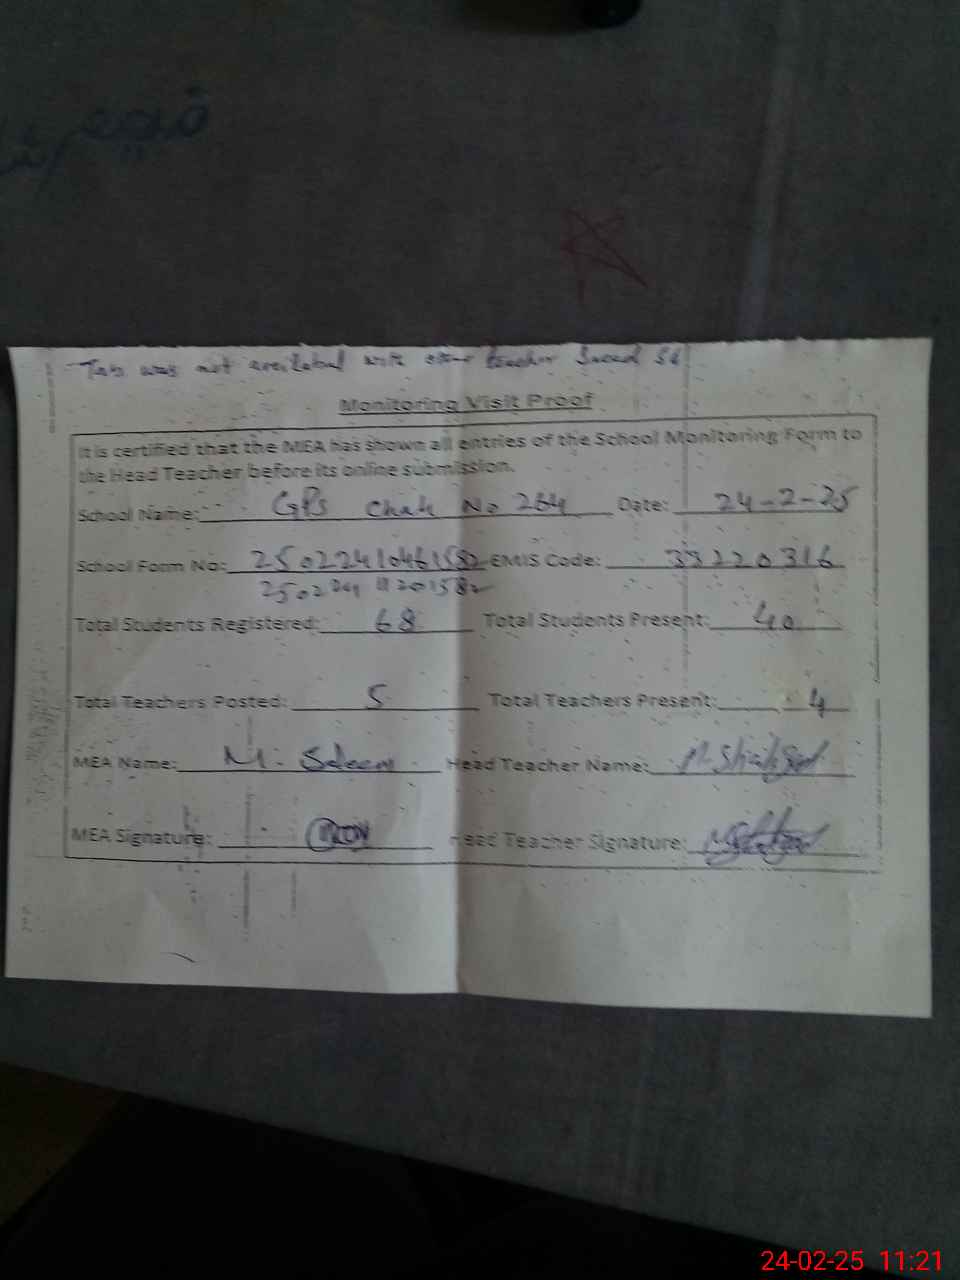 قیصر
Tab was not availabul with other teacher
Monitoring Visit Proof
It is certified that the MEA has shown all entries of the School Monitoring Form to
the Head Teacher before its online submission.
School Name: GPS Chak No 264 Date: 24-2-25
School Form No: EMIS Code: 33220316
Total Students Registered: 68 Total Students Present: 40
Total Teachers Posted: 5 Total Teachers Present: 4
MEA Name: M. Saleem Head Teacher Name:
MEA Signature: Head Teacher Signature:
24-02-25 11:21